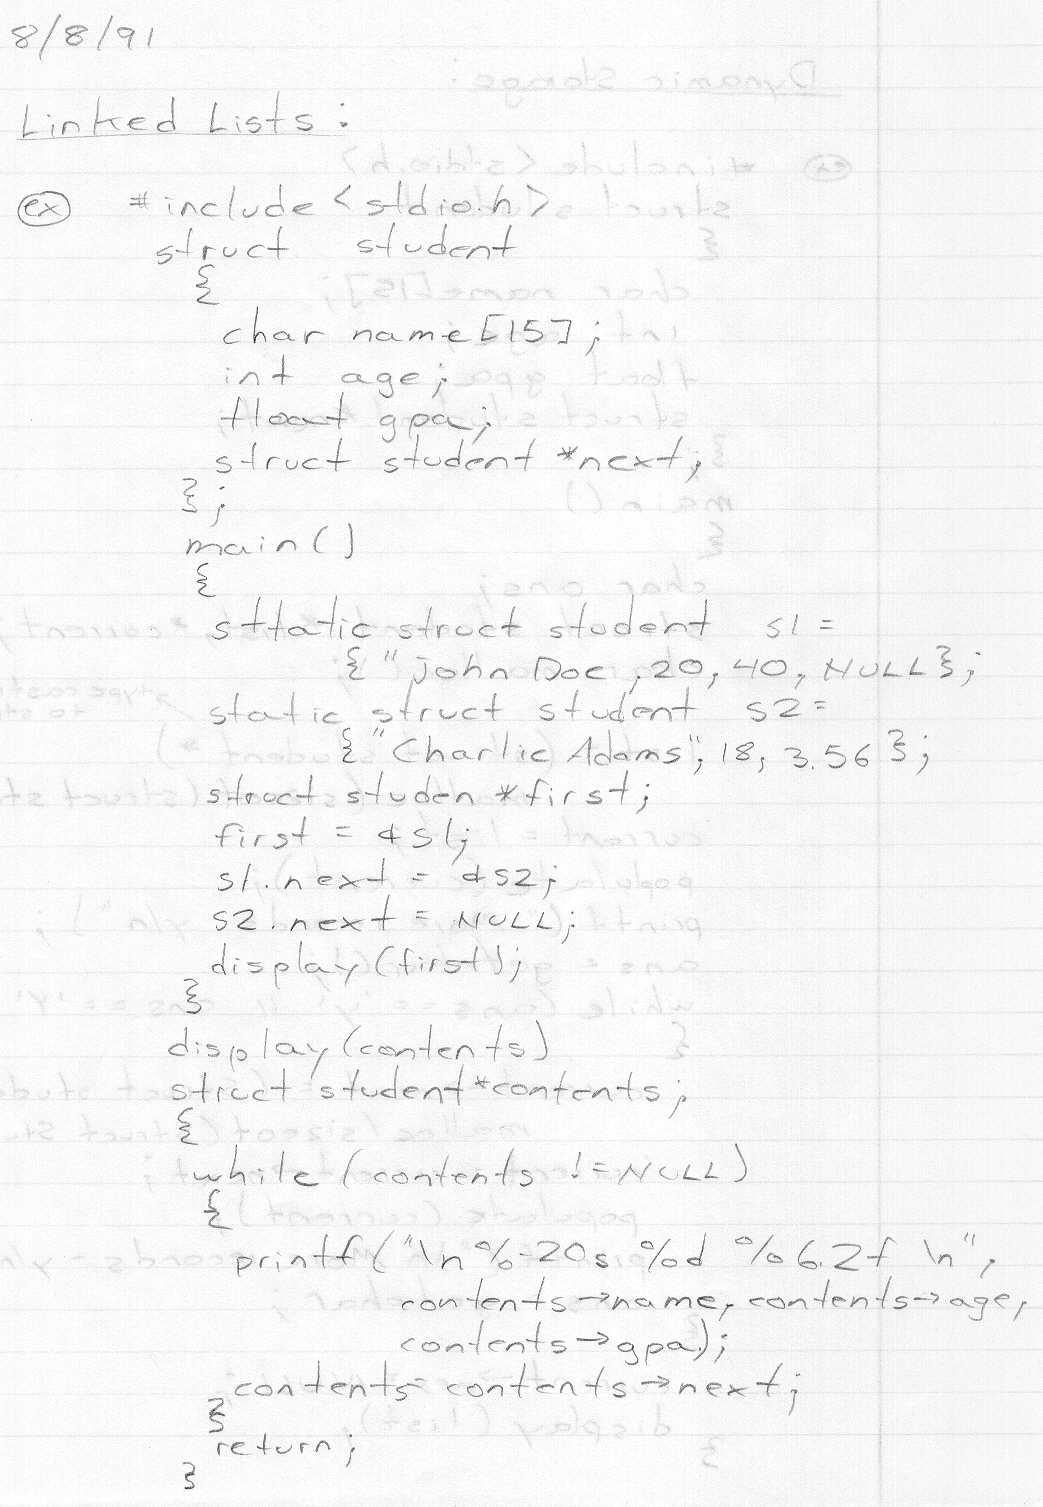 8/8/91
Linked Lists:
ex #include <stdio.h>
struct student
{
char name[15];
int age;
float gpa;
struct student *next;
};
main()
{
sttatic struct student s1 =
{ "John Doe, 20, 40, NULL};
static struct student s2=
{"Charlie Adams", 18, 3.56};
struct studen *first;
first = &s1;
s1.next = &s2;
s2.next = NULL;
display(first);
}
display(contents)
struct student *contents;
{
while (contents != NULL)
{
printf("\n %-20s %d %6.2f \n",
contents→name, contents→age,
contents→gpa);
contents= contents→next;
}
return;
}